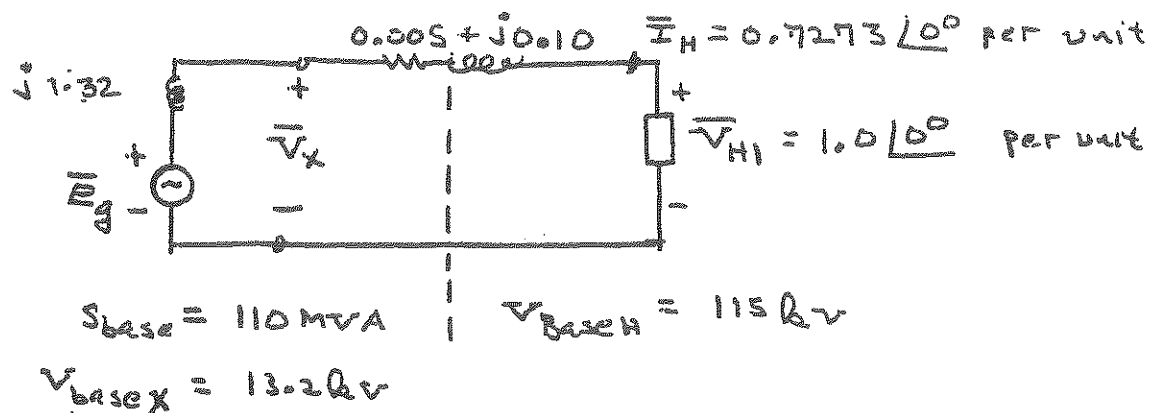 0.005 + j0.10 I̅_H = 0.7273 ∠0° per unit
j1.32
+ +
V̅_X V̅_H1 = 1.0 ∠0° per unit
+
E̅_g
- - -
S_base = 110 MVA V_BaseH = 115 kv
V_baseX = 13.2 kv